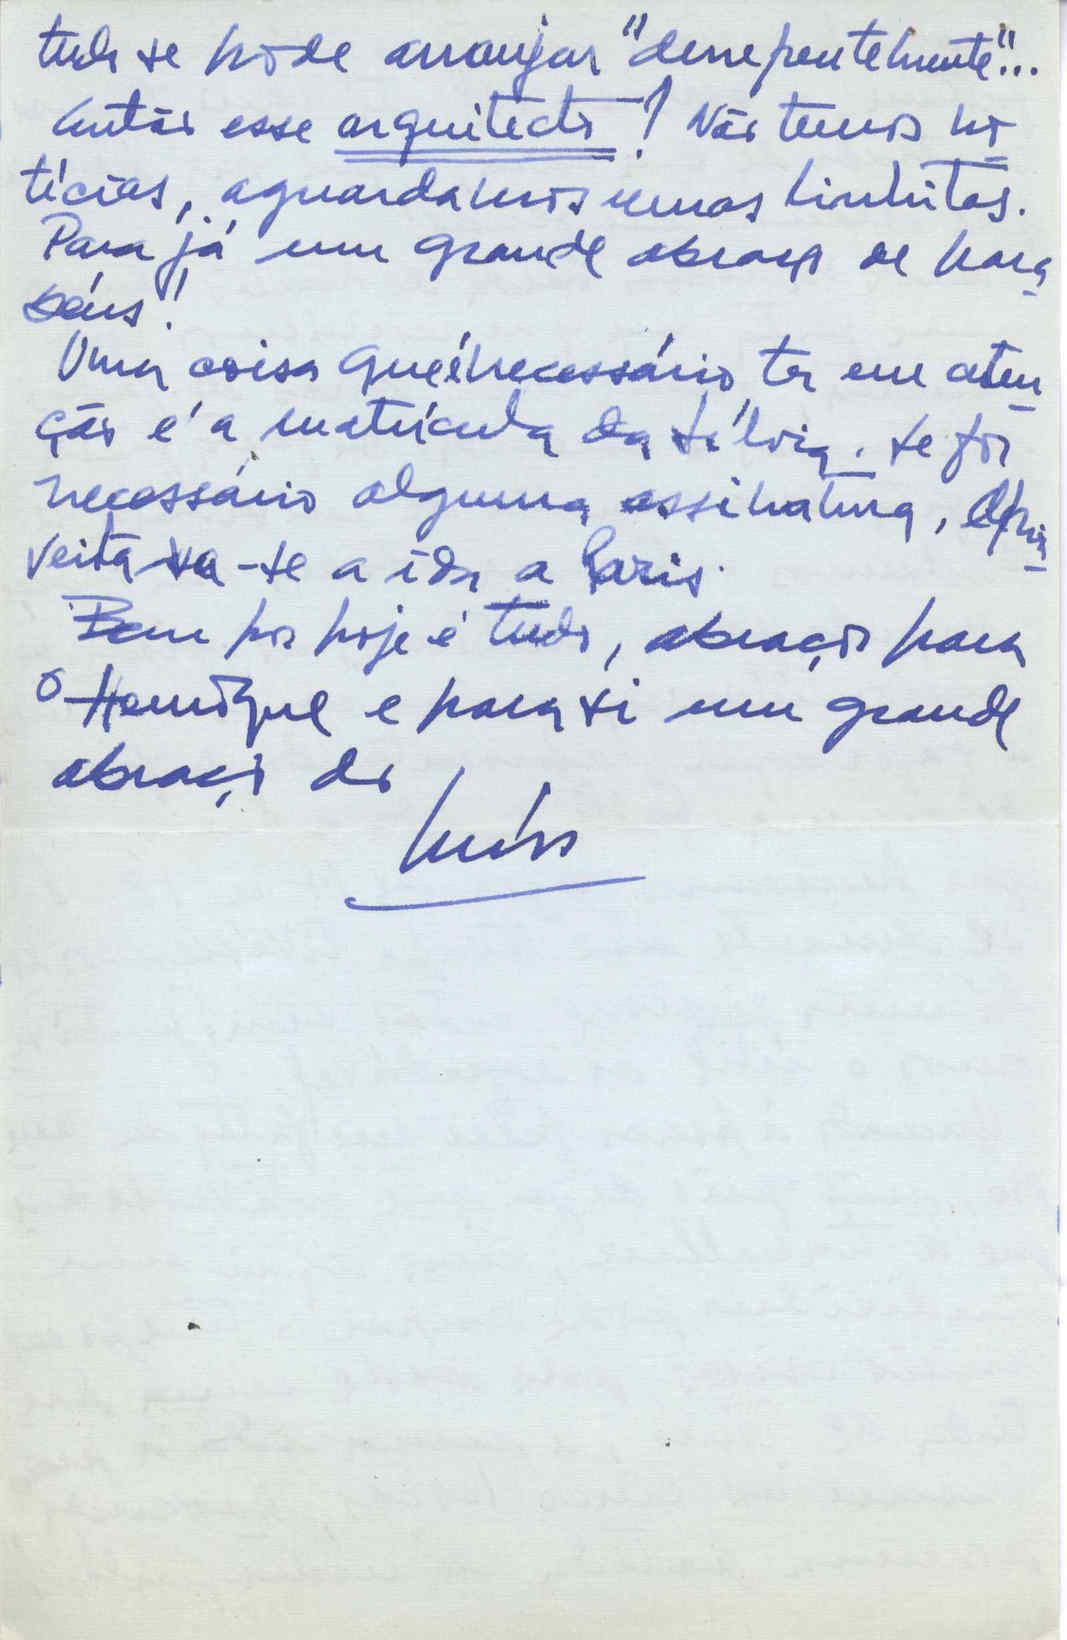 tudo se pode arranjar "derrepentemente"...
Então esse arquitecto! Não temos no
tícias, aguardamos umas linhitas.
Para já um grande abraço de para
béns!
Uma coisa que é necessário ter em aten
ção é a matrícula da Sílvia. Se fôr
necessário alguma assinatura, apro
veitava-se a ida a Paris.
Bem por hoje é tudo, abraços para
o Henrique e para ti um grande
abraço do